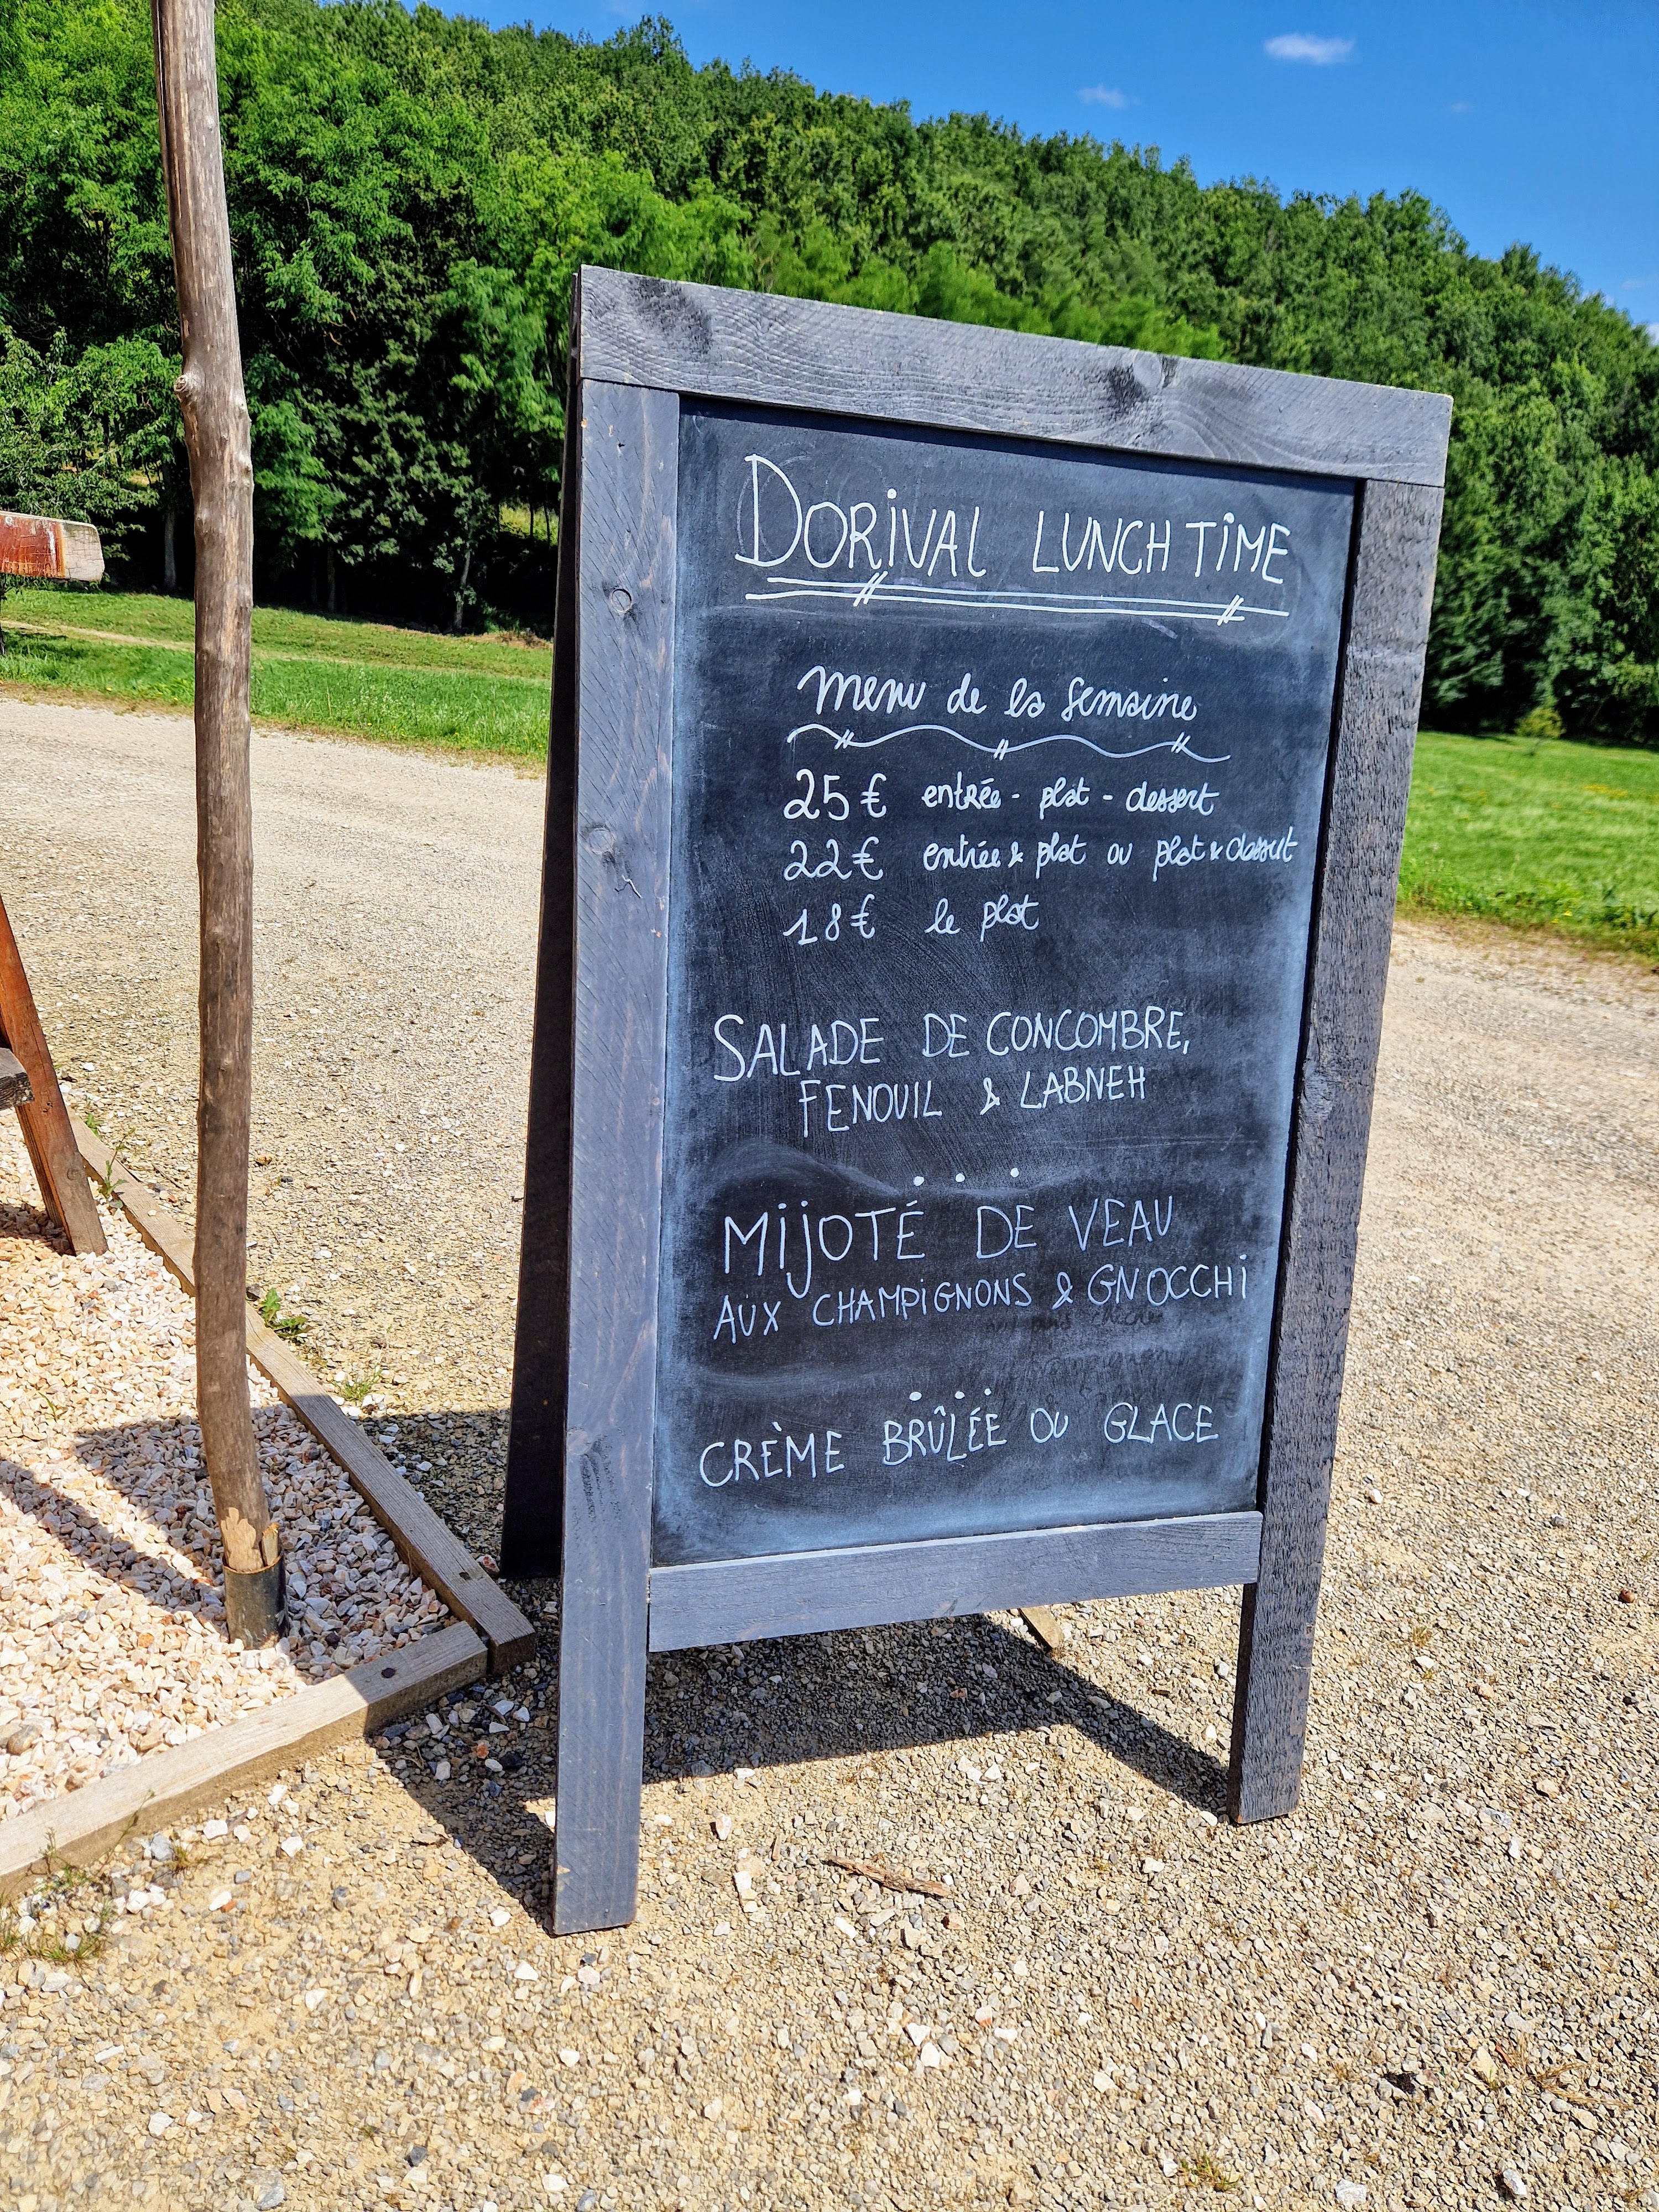 DORIVAL LUNCH TIME
menu de la semaine
25€ entrée - plat - dessert
22€ entrée & plat ou plat & dessert
18€ le plat
SALADE DE CONCOMBRE,
FENOUIL & LABNEH
MIJOTÉ DE VEAU
AUX CHAMPIGNONS & GNOCCHI
CRÈME BRÛLÉE OU GLACE